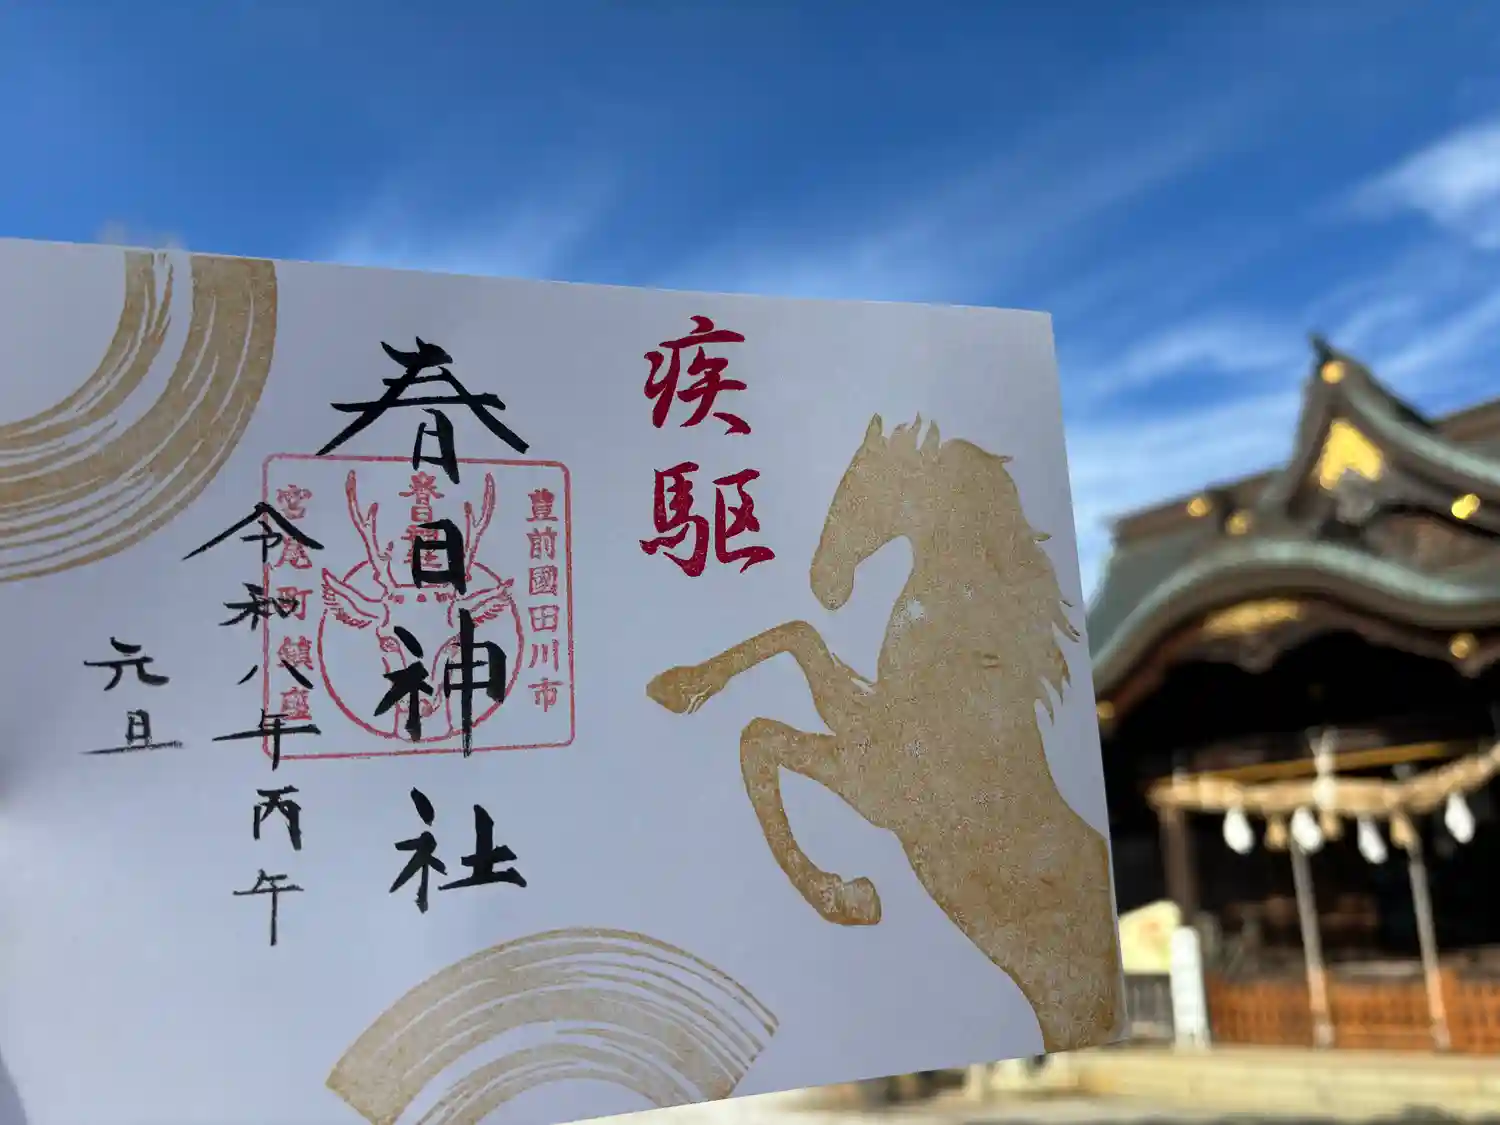 疾駆
春日神社
豊前國田川市
春日神社
宮尾町鎮座
令和八年丙午
元旦